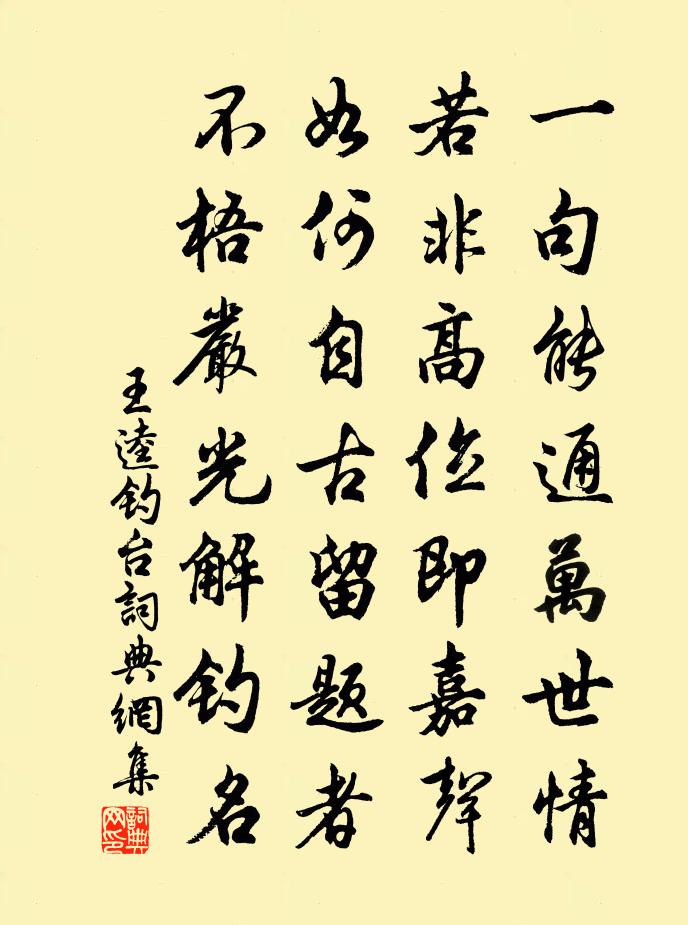 一句能通萬世情
若非高位即嘉聲
如何自古留題者
不悟嚴光解釣名
王逵釣台詞典網集
詞典网印